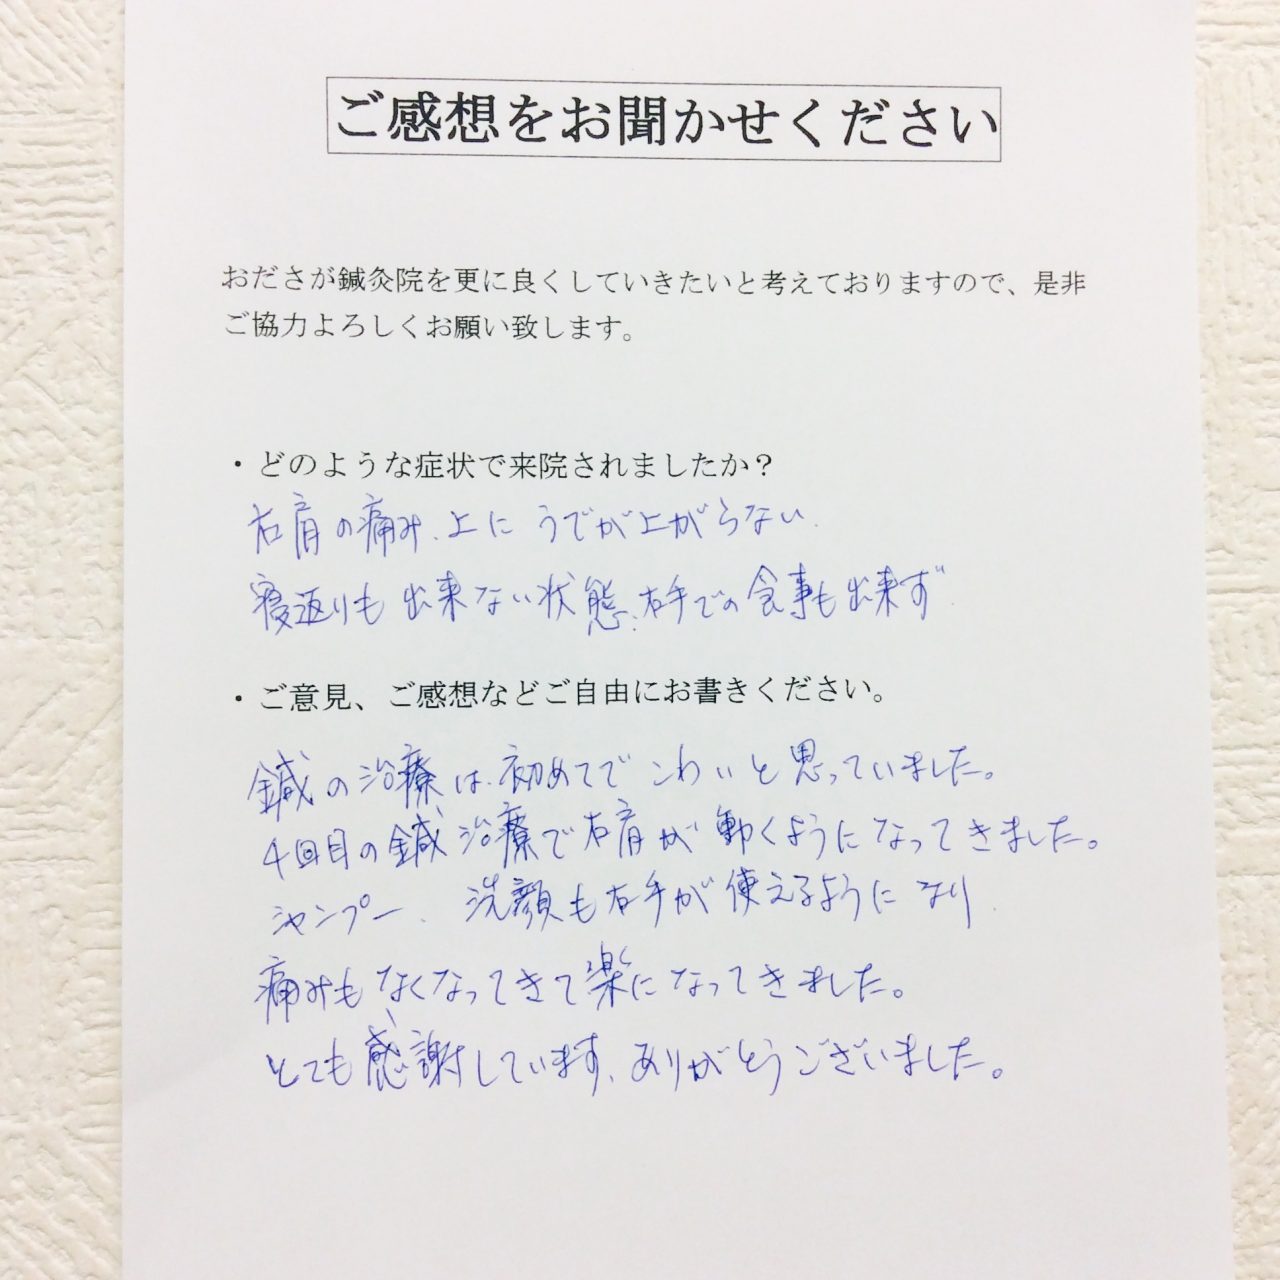 ご感想をお聞かせください
おださが鍼灸院を更に良くしていきたいと考えておりますので、是非
ご協力よろしくお願い致します。
・どのような症状で来院されましたか？
右肩の痛み、上にうでが上がらない、
寝返りも出来ない状態、右手での食事も出来ず
・ご意見、ご感想などご自由にお書きください。
鍼の治療は、初めてでこわいと思っていました。
4回目の鍼治療で右肩が動くようになってきました。
シャンプー、洗顔も右手が使えるようになり、
痛みもなくなってきて楽になってきました。
とても感謝しています、ありがとうございました。